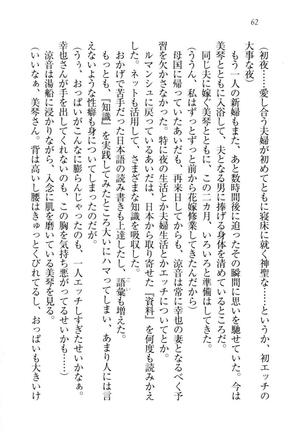 62
（初夜……愛し合う夫婦が初めてともに寝床に就く神聖な……というか、初エッチの
大事な夜）
もう一人の新婦もまた、あと数時間後に迫ったその瞬間に思いを馳せていた。今は
美琴とともに入浴して、夫となる男に捧げる身体を清めているところだ。
同じ夫に嫁ぐ美琴とともに、この二カ月、いろいろと準備はしてきた。
（ううん、私はずっとずっと前から花嫁修業してきたんだから）
母国に帰ってきたあいだも、再来日してからも、涼音は幸也の妻となるべく予
習を欠かさなかった。特に夜の生活とか夫婦生活とかエッチについてとか。
ルマンシュに戻っているあいだは、日本から取り寄せた「資料」を何度も読みかえ
した。ネットも活用して、さまざまな知識を吸収した。
おかげで苦手だった日本語の読み書きも上達したし、語彙も増えた。
もっとも、「知識」を実践してみたところ大いにハマってしまい、あまり人には言
えないような性癖も身についてしまったのだが。
（うぅ、おっぱいがこんなに膨らんじゃったのも、一人エッチしすぎたせいかも……
幸也さんが手を出してくれないのも、この胸を気持ち悪がってるせいかも……）
涼音は湯船に浸かりながら、入念に肌を磨いている美琴を見る。
（いいなぁ、美琴さん。背は高いし腰はきゅっとくびれてるし、おっぱいも大きいけ